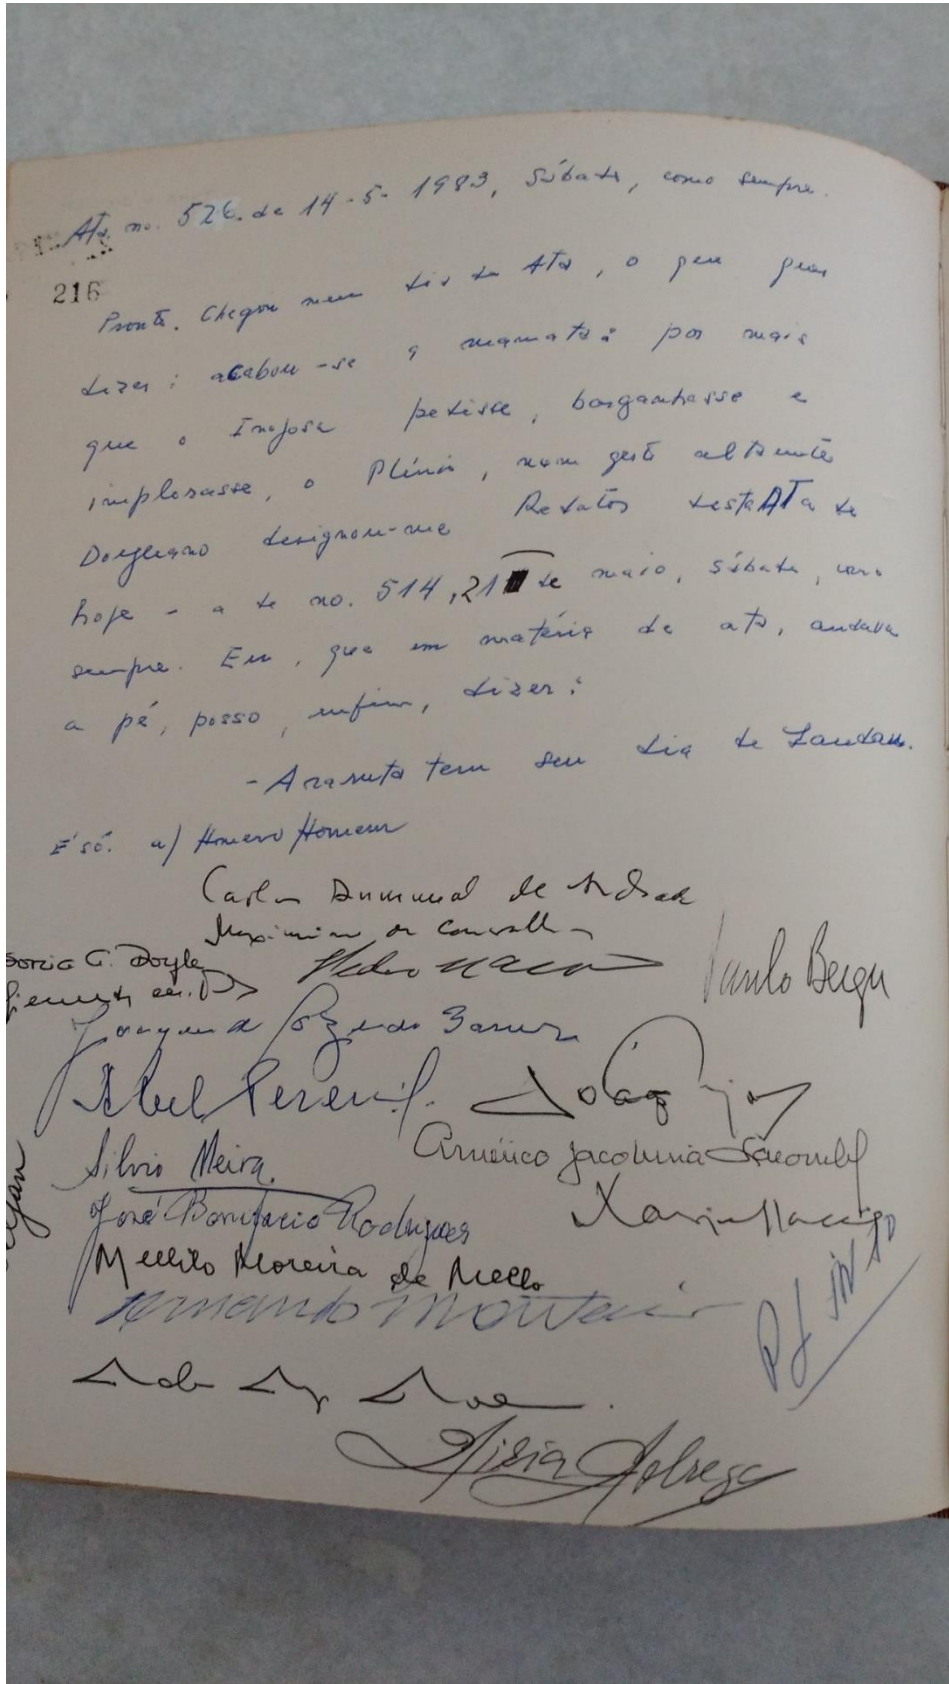 Ata no. 526. de 14-5-1983, Sábado, como sempre.
216
Pronto. Chegou meu dia de Ata, o que quer
dizer: acabou-se a mamata: por mais
que o Inojosa pedisse, barganhasse e
implorasse, o Plínio, num gesto altamente
Doyleano designou-me Redator desta Ata de
hoje - a de no. 514, 21 de maio, Sábado, como
sempre. Eu, que em matéria de ata, andava
a pé, posso, enfim, dizer:
- Araruta tem seu dia de
É só. a) Homero Homem
Carlos Drummond de Andrade
Maximiano de Carvalho
Sonia G. Doyle
Pedro Nava
Danilo
Joaquim
Abel Pereira
Américo Jacobina Lacombe
Silvio Meira
José Bonifacio Rodrigues
Mellilo Moreira de Mello
Armando Monteiro